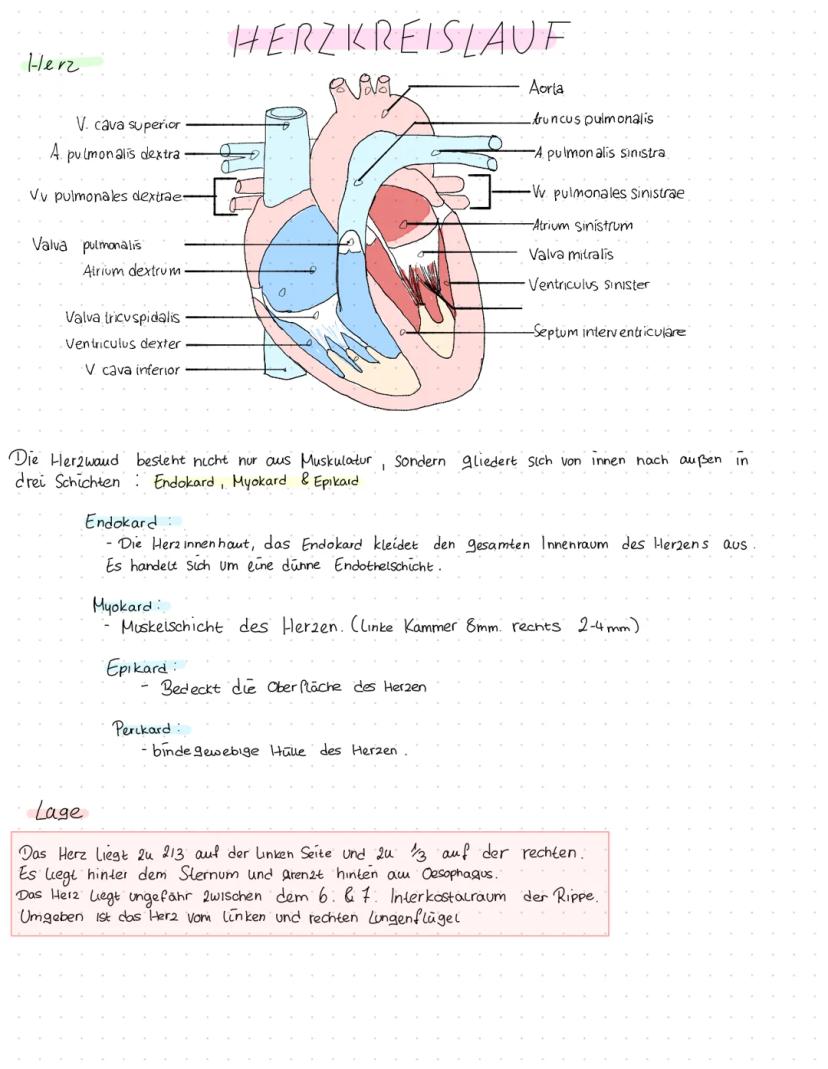 HERZKREISLAUF
Herz
Aorta
truncus pulmonalis
V. cava superior
A. pulmonalis dextra
A. pulmonalis sinistra
Vv pulmonales dextrae
Vv. pulmonales sinistrae
Atrium sinistrum
Valva pulmonalis
Valva mitralis
Atrium dextrum
Ventriculus sinister
Valva tricuspidalis
Septum interventriculare
Ventriculus dexter
V cava inferior
Die Herzwand besteht nicht nur aus Muskulatur, sondern gliedert sich von innen nach außen in
drei Schichten : Endokard, Myokard & Epikard
Endokard :
- Die Herzinnenhaut, das Endokard kleidet den gesamten Innenraum des Herzens aus.
Es handelt sich um eine dünne Endothelschicht.
Myokard :
- Muskelschicht des Herzen. (linke Kammer 8mm. rechts 2-4mm)
Epikard :
- Bedeckt die Oberfläche des Herzen
Perikard :
- bindegewebige Hülle des Herzen.
Lage
Das Herz liegt zu 2/3 auf der linken Seite und zu 1/3 auf der rechten.
Es liegt hinter dem Sternum und grenzt hinten am Oesophagus.
Das Herz liegt ungefähr zwischen dem 6. & 7. Interkostalraum der Rippe.
Umgeben ist das Herz vom linken und rechten Lungenflügel